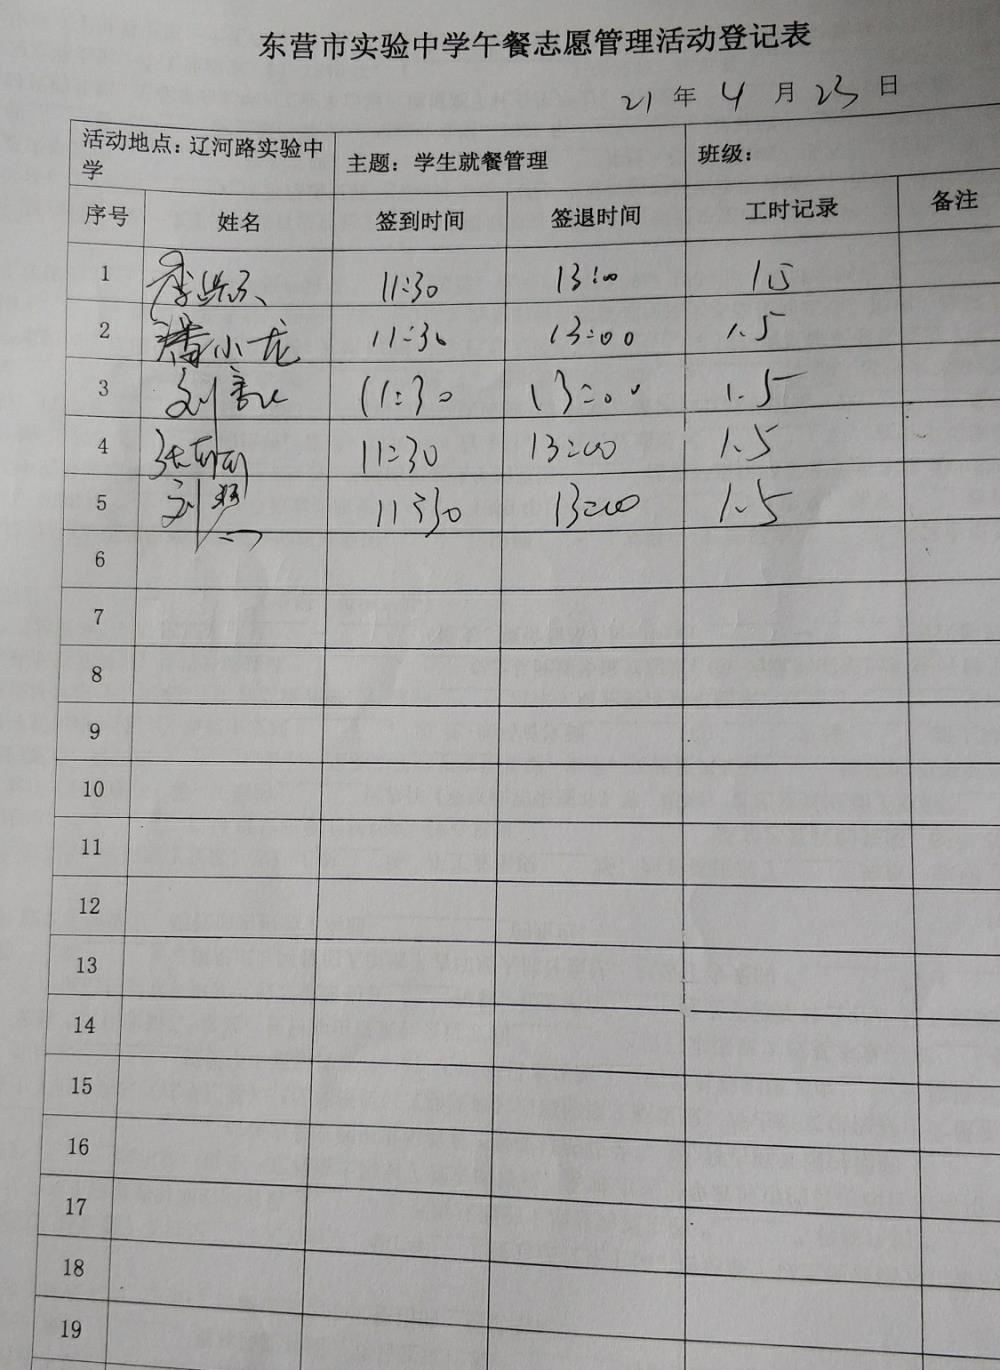 东营市实验中学午餐志愿管理活动登记表
21 年 4 月 23 日
活动地点：辽河路实验中学 主题：学生就餐管理 班级：
序号 姓名 签到时间 签退时间 工时记录 备注
1 11:30 13:00 1.5
2 潘小龙 11:30 13:00 1.5
3 刘 11:30 13:00 1.5
4 张 11:30 13:00 1.5
5 刘 11:30 13:00 1.5
6
7
8
9
10
11
12
13
14
15
16
17
18
19